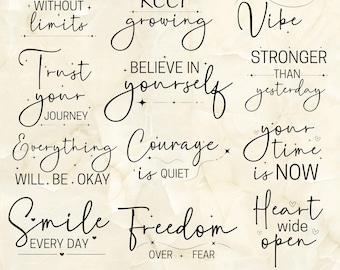 WITHOUT
limits
KEEP
growing
Vibe
Trust
your
JOURNEY
BELIEVE IN
yourself
STRONGER
THAN
yesterday
Everything
WILL BE OKAY
Courage
is QUIET
your
time
is NOW
Smile
EVERY DAY
Freedom
OVER FEAR
Heart
wide
open